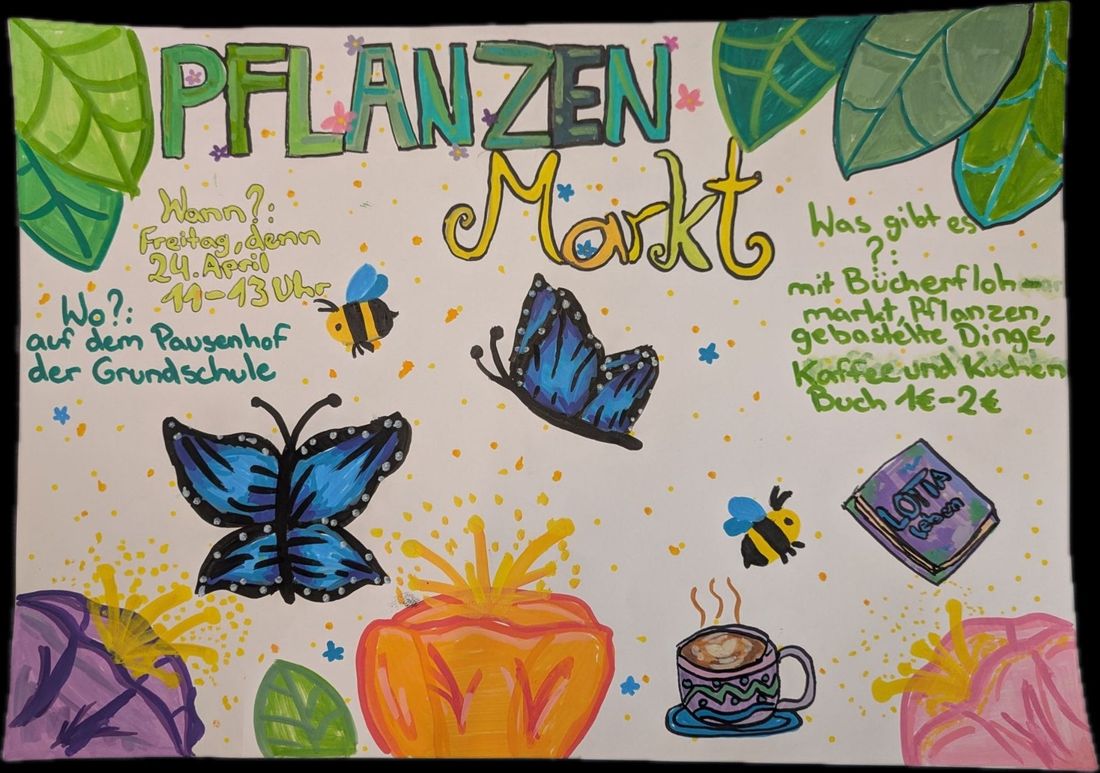 PFLANZEN
Markt
Wann?:
Freitag, denn
24. April
11-13 Uhr
Wo?:
auf dem Pausenhof
der Grundschule
Was gibt es
?:
mit Bücherfloh-
markt, Pflanzen,
gebastelte Dinge,
Kaffee und Kuchen
Buch 1€-2€
LOTTA
leben